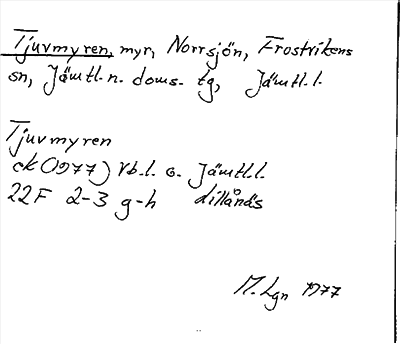 Tjuvmyren, myr, Norrsjön, Frostvikens
sn, Jämtl. n. doms. tg, Jämtl. l.
Tjuvmyren
ek (1977) Vb. l. o. Jämtl. l.
22F 2-3 g-h
M. Lgn 1977